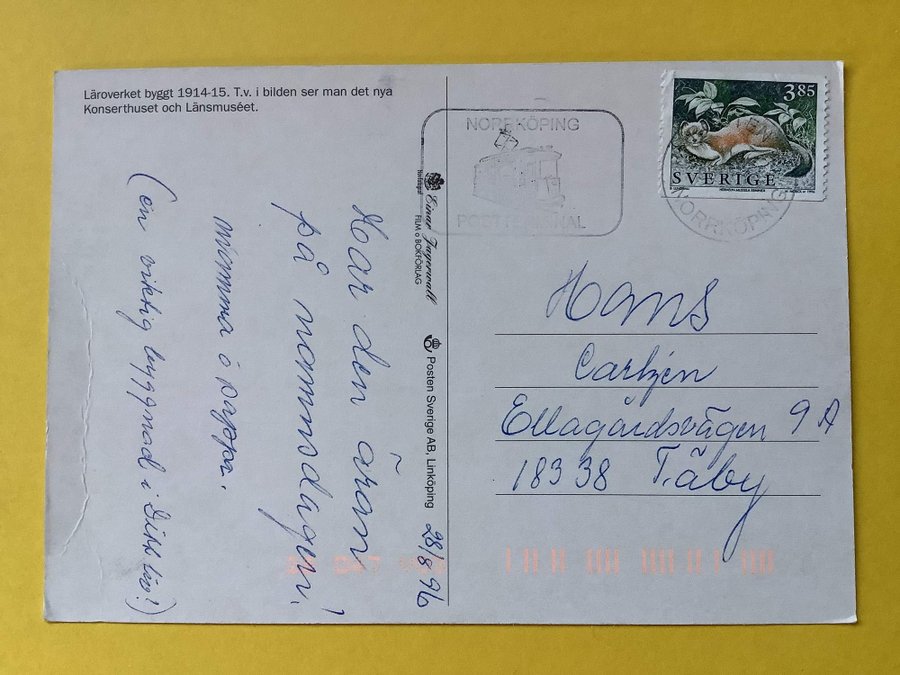 Läroverket byggt 1914-15. T.v. i bilden ser man det nya
Konserthuset och Länsmuséet.
Har den äran
på namnsdagen!
mamma o pappa.
(en viktig byggnad i Ditt liv!)
28/8 96
Einar Jagerwall
FILM o BOKFÖRLAG
Posten Sverige AB, Linköping
NORRKÖPING
POSTTERMINAL
3.85
SVERIGE
NORRKÖPING
Hans
Carlzén
Ellagårdsvägen 9 A
183 38 Täby